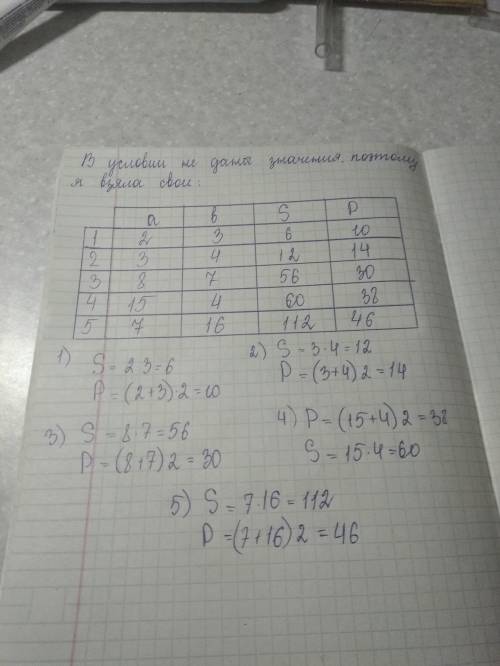 В условии не даны значения, поэтому
я взяла свои:
а в S P
1 2 3 6 10
2 3 4 12 14
3 8 7 56 30
4 15 4 60 38
5 7 16 112 46
1) S = 2·3=6
P = (2+3)·2=10
2) S = 3·4=12
P = (3+4)2=14
3) S = 8·7=56
P = (8+7)2=30
4) P = (15+4)2=38
S = 15·4=60
5) S = 7·16=112
P =(7+16)2=46